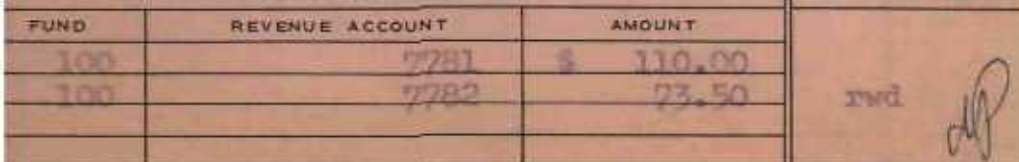 FUND REVENUE ACCOUNT AMOUNT
100 7781 $ 110.00
100 7782 73.50 rwd